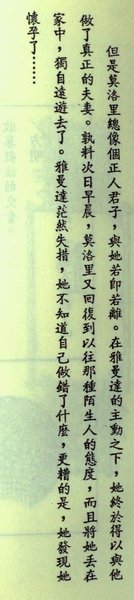 但是莫洛里總像個正人君子，與她若即若離。在雅曼達的主動之下，她終於得以與他
做了真正的夫妻。孰料次日早晨，莫洛里又回復到以往那種陌生人的態度，而且將她丟在
家中，獨自遠遊去了。雅曼達茫然失措，她不知道自己做錯了什麼，更糟的是，她發現她
懷孕了……